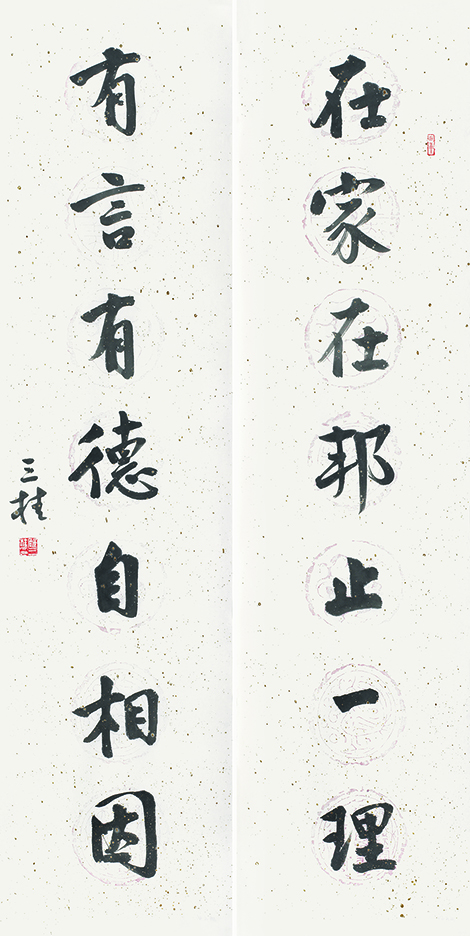 在家在邦止一理
有言有德自相因
三桂